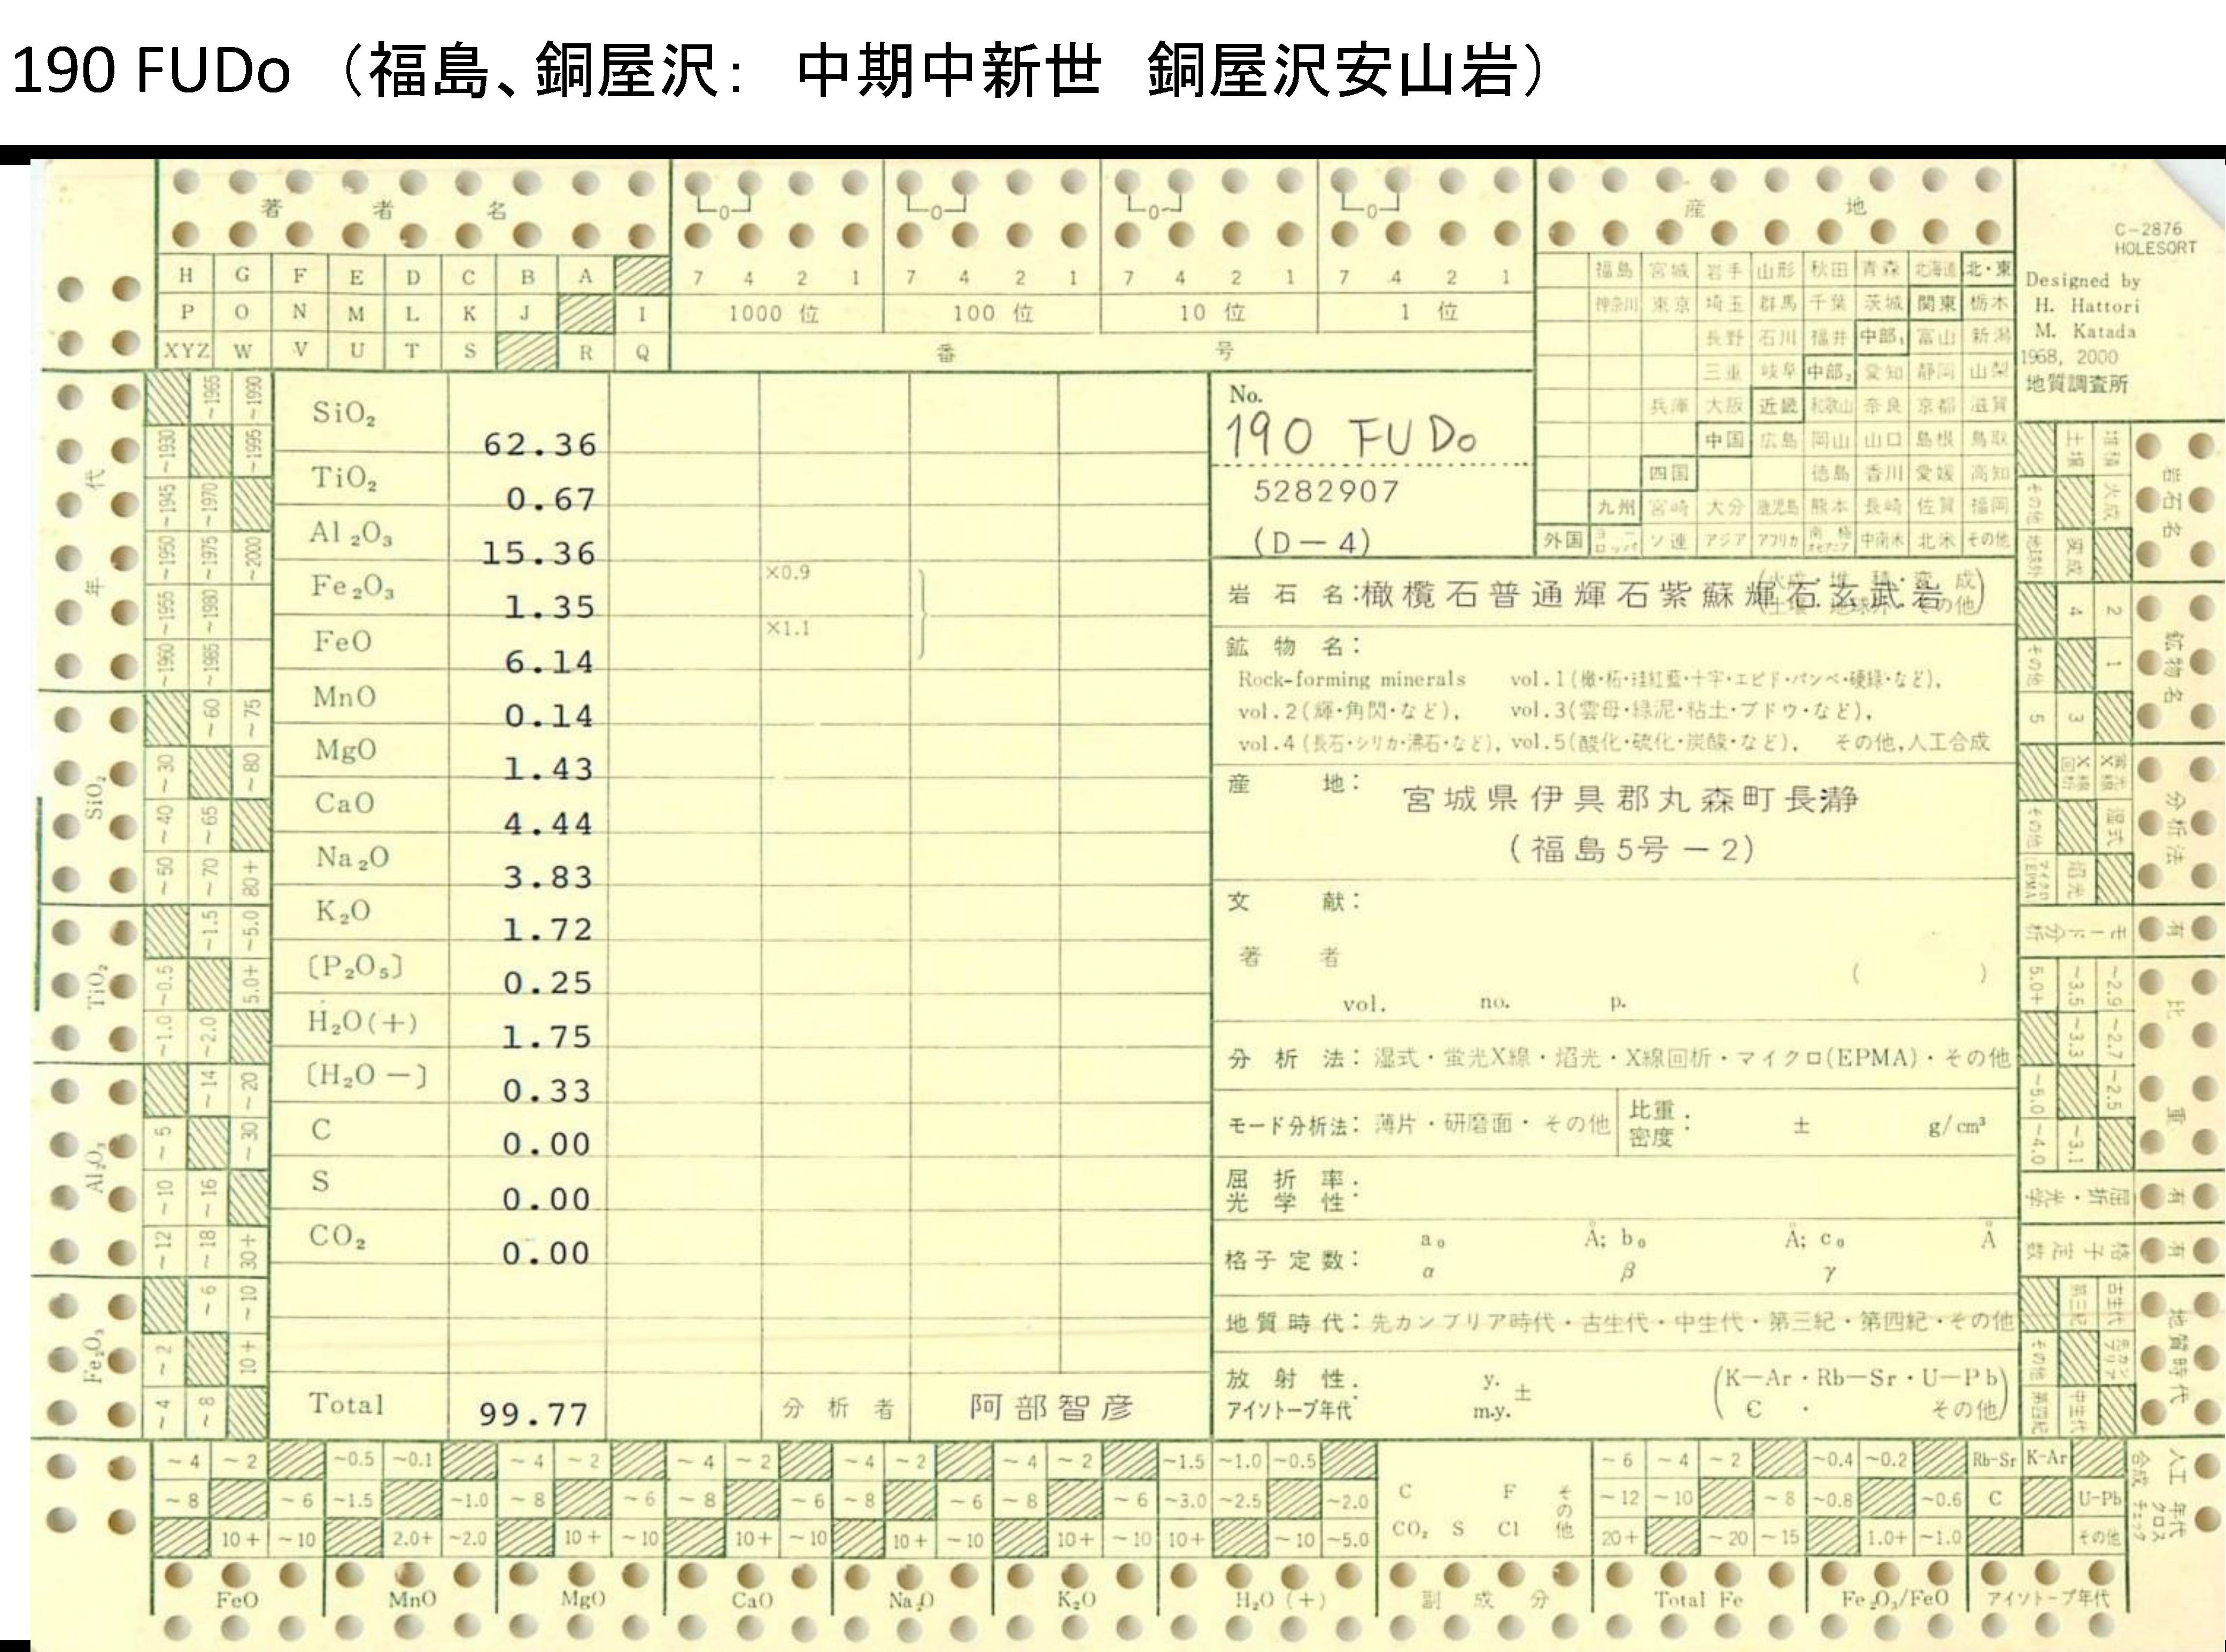 190 FUDo （福島、銅屋沢： 中期中新世 銅屋沢安山岩）
著 者 名
産 地
C-2876
HOLESORT
Designed by
H. Hattori
M. Katada
1968, 2000
地質調査所
H G F E D C B A
P O N M L K J I
XYZ W V U T S R Q
7 4 2 1 7 4 2 1 7 4 2 1 7 4 2 1
1000 位 100 位 10 位 1 位
番 号
福島 宮城 岩手 山形 秋田 青森 北海道 北・東
神奈川 東京 埼玉 群馬 千葉 茨城 関東 栃木
長野 石川 福井 中部₁ 富山 新潟
三重 岐阜 中部₂ 愛知 静岡 山梨
兵庫 大阪 近畿 和歌山 奈良 京都 滋賀
中国 広島 岡山 山口 島根 鳥取
四国 徳島 香川 愛媛 高知
九州 宮崎 大分 鹿児島 熊本 長崎 佐賀 福岡
外国 ヨーロッパ ソ連 アジア アフリカ 中南米 北米 その他
No.
190 FUDo
5282907
(D-4)
SiO₂ 62.36
TiO₂ 0.67
Al₂O₃ 15.36
Fe₂O₃ 1.35 ×0.9
FeO 6.14 ×1.1
MnO 0.14
MgO 1.43
CaO 4.44
Na₂O 3.83
K₂O 1.72
〔P₂O₅〕 0.25
H₂O(+) 1.75
〔H₂O −〕 0.33
C 0.00
S 0.00
CO₂ 0.00
Total 99.77 分析者 阿部智彦
岩石名：橄欖石普通輝石紫蘇輝石玄武岩
鉱物名：
Rock-forming minerals vol.1(橄・柘・珪紅藍・十字・エピド・パンペ・硬緑・など),
vol.2(輝・角閃・など), vol.3(雲母・緑泥・粘土・ブドウ・など),
vol.4(長石・シリカ・沸石・など), vol.5(酸化・硫化・炭酸・など), その他,人工合成
産地：
宮城県伊具郡丸森町長瀞
(福島5号-2)
文献：
著者 ( )
vol. no. p.
分析法：湿式・蛍光X線・焰光・X線回析・マイクロ(EPMA)・その他
モード分析法：薄片・研磨面・その他 比重密度： ± g/cm³
屈折率・光学性：
格子定数： a₀ Å; b₀ Å; c₀ Å
α β γ
地質時代：先カンブリア時代・古生代・中生代・第三紀・第四紀・その他
放射性アイソトープ年代： y. m.y. ± (K-Ar・Rb-Sr・U-Pb
C ・ その他)
年代
~1965 ~1990
~1930 ~1995
~1945 ~1970
~1950 ~1975 ~2000
~1955 ~1980
~1960 ~1985
SiO₂
~60 ~75
~30 ~80
~40 ~65
~50 ~70 80+
TiO₂
~1.5 ~5.0
~0.5 5.0+
~1.0 ~2.0
Al₂O₃
~14 ~20
~5 ~30
~10 ~16
~12 ~18 30+
Fe₂O₃
~6 ~10
~2 10+
~4 ~8
岩石名
堆積 土壌
火成 その他
変成 地球外
鉱物名
2 4
1 その他
3 5
分析法
蛍光X線 X線回析
湿式 その他
焰光 マイクロ(EPMA)
有 モード分析
比重
~2.9 ~3.5 5.0+
~2.7 ~3.3
~2.5 ~5.0
~3.1 ~4.0
有 屈折・光学
有 格子定数
地質時代
古生代 第三紀
先カンブリア その他
中生代 第四紀
~4 ~2 ~0.5 ~0.1 ~4 ~2 ~4 ~2 ~4 ~2 ~4 ~2 ~1.5 ~1.0 ~0.5 ~6 ~4 ~2 ~0.4 ~0.2 Rb-Sr K-Ar
~8 ~6 ~1.5 ~1.0 ~8 ~6 ~8 ~6 ~8 ~6 ~8 ~6 ~3.0 ~2.5 ~2.0 C F その他 ~12 ~10 ~8 ~0.8 ~0.6 C U-Pb
10+ ~10 2.0+ ~2.0 10+ ~10 10+ ~10 10+ ~10 10+ ~10 10+ ~10 ~5.0 CO₂ S Cl 20+ ~20 ~15 1.0+ ~1.0 その他
人工合成 年代クロスチェック
FeO MnO MgO CaO Na₂O K₂O H₂O(+) 副成分 Total Fe Fe₂O₃/FeO アイソトープ年代